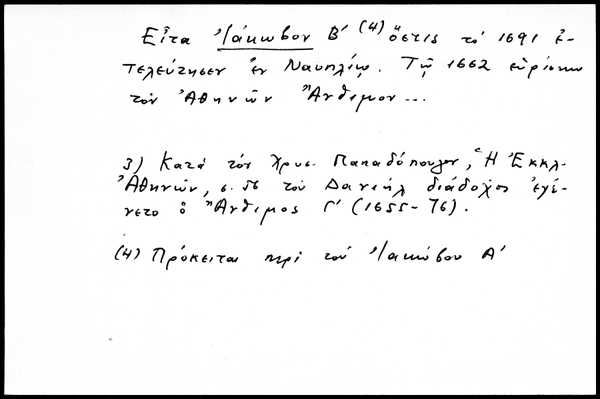 Εἶτα Ἰάκωβον Β' (4) ὅστις τῷ 1691 ἐ-
τελεύτησεν ἐν Ναυπλίῳ. Τῷ 1662 εὑρίσκω
τὸν Ἀθηνῶν Ἄνθιμον...
3) Κατά τόν Χρυσ. Παπαδόπουλον, Ἡ Ἐκκλ.
Ἀθηνῶν, σ. 56 τὸν Δανιήλ διάδοχος ἐγέ-
νετο ὁ Ἄνθιμος Γ' (1655-76).
(4) Πρόκειται περί τοῦ Ἰακώβου Α'